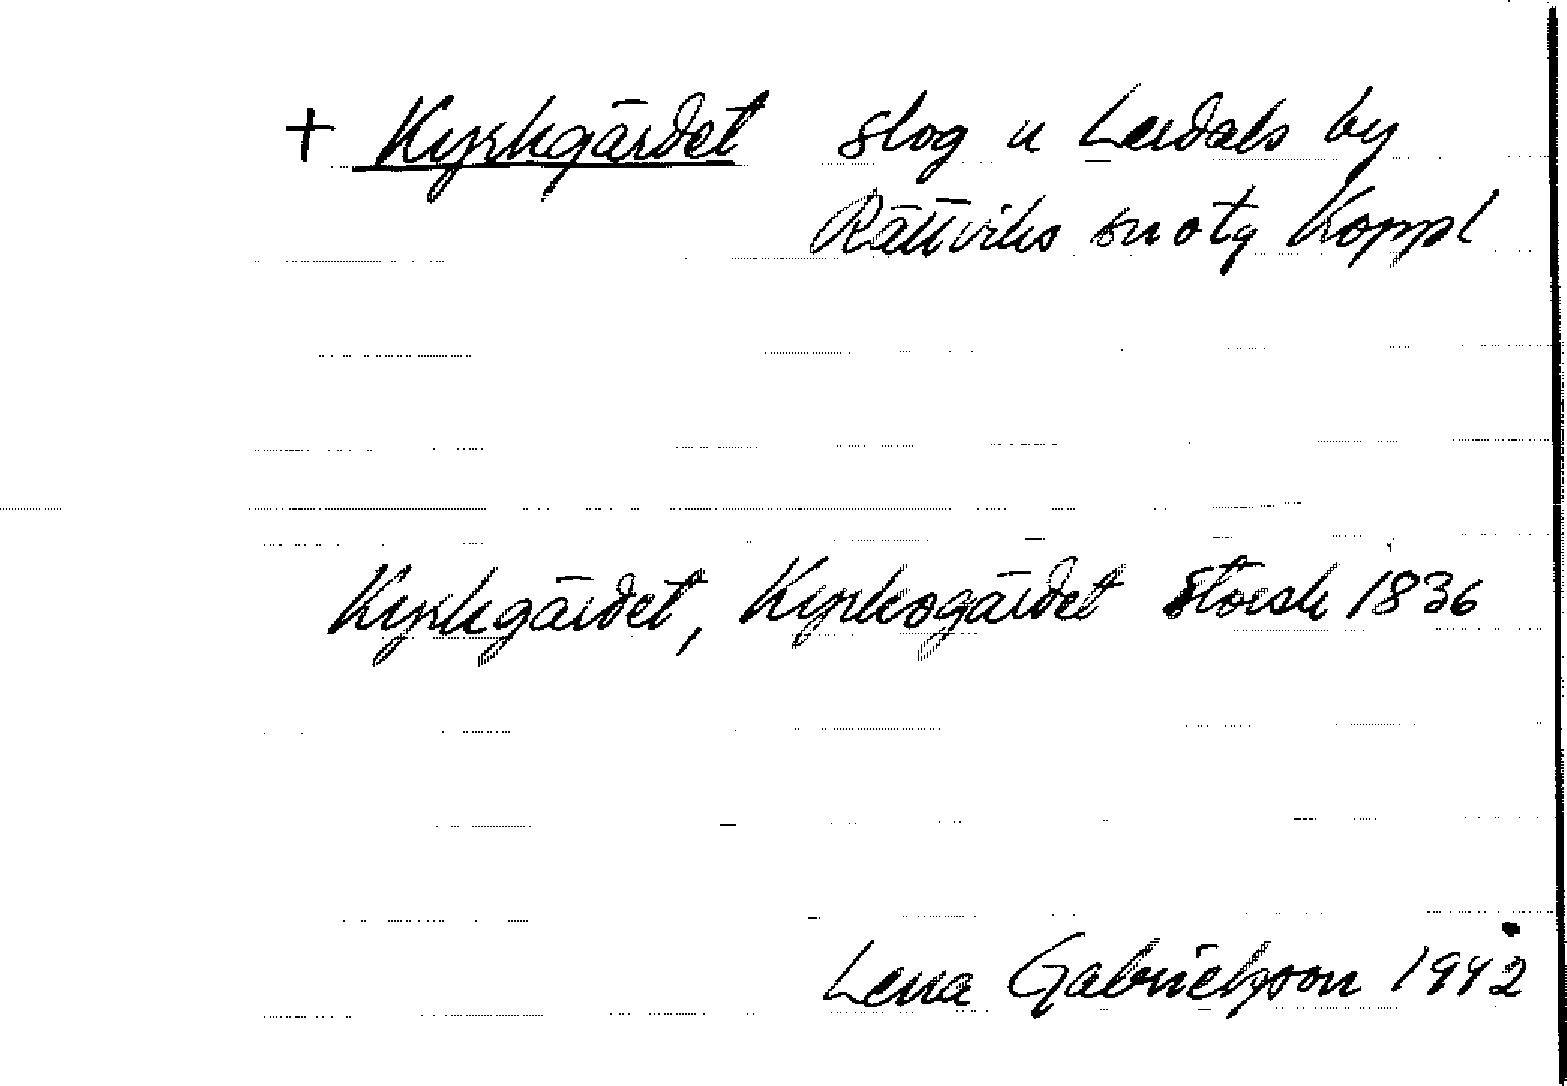 + Kyrkgärdet slog u Lerdals by
Rättviks sn o tg Koppl
Kyrkgärdet, Kyrkogärdet Storsk 1836
Lena Gabrielsson 1942